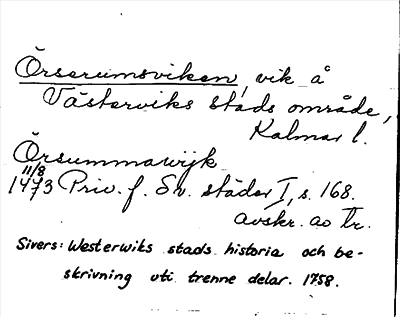 Örserumsviken, vik å
Västerviks stads område,
Kalmar l.
Örsummawijk
11/8
1473 Priv. f. Sv. städer I, s. 168.
avskr. av Tr.
Sivers: Westerwiks stads historia och be-
skrivning uti trenne delar. 1758.